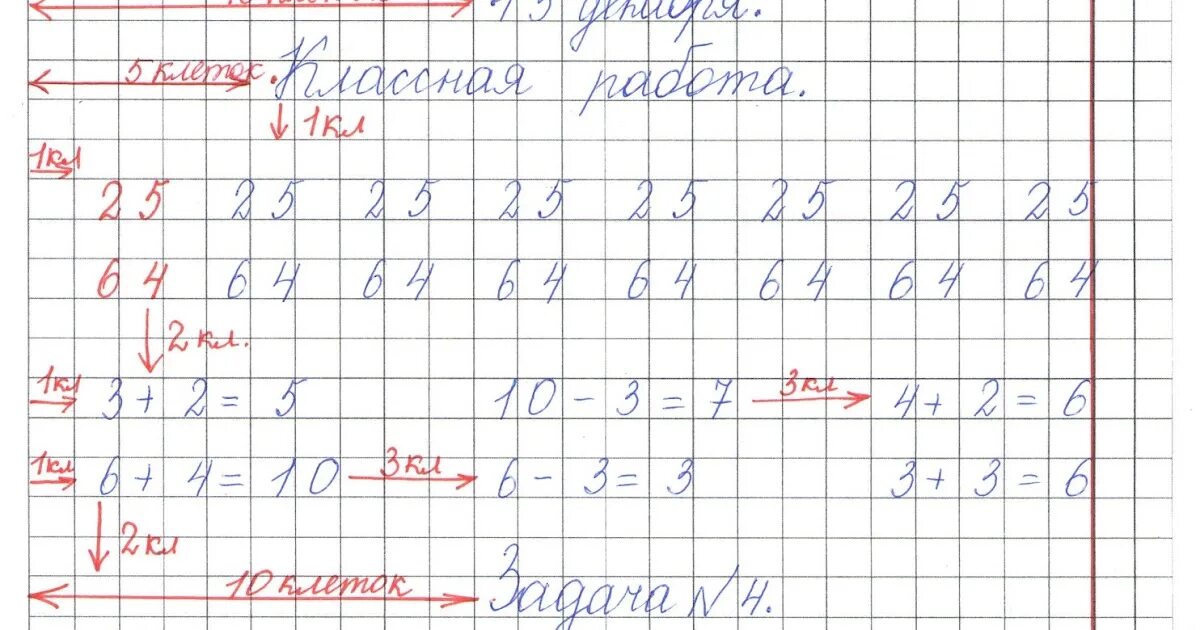 10 клеток 13 декабря.
5 клеток. Классная работа.
1кл
1кл
25 25 25 25 25 25 25 25
64 64 64 64 64 64 64 64
2 кл.
1кл 3 + 2 = 5 10 - 3 = 7 3кл 4 + 2 = 6
1кл 6 + 4 = 10 3кл 6 - 3 = 3 3 + 3 = 6
2кл
10 клеток Задача №4.